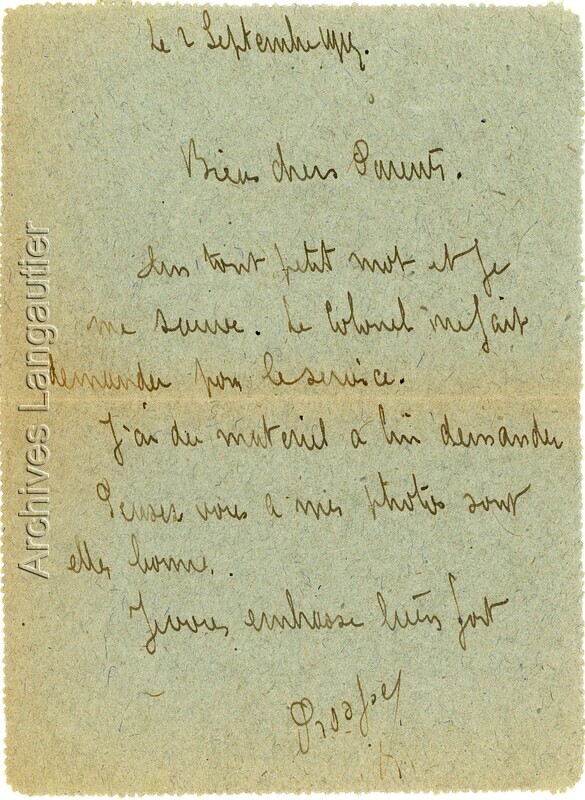 Le 2 Septembre 1917.
Bien chers Parents.
Un tout petit mot et je
me sauve. Le Colonel me fait
demander pour le service.
J'ai du materiel a lui demander
Pensez vous a mes photos sont
elles bonne.
Je vous embrasse bien fort
Prosper
Archives Langautier